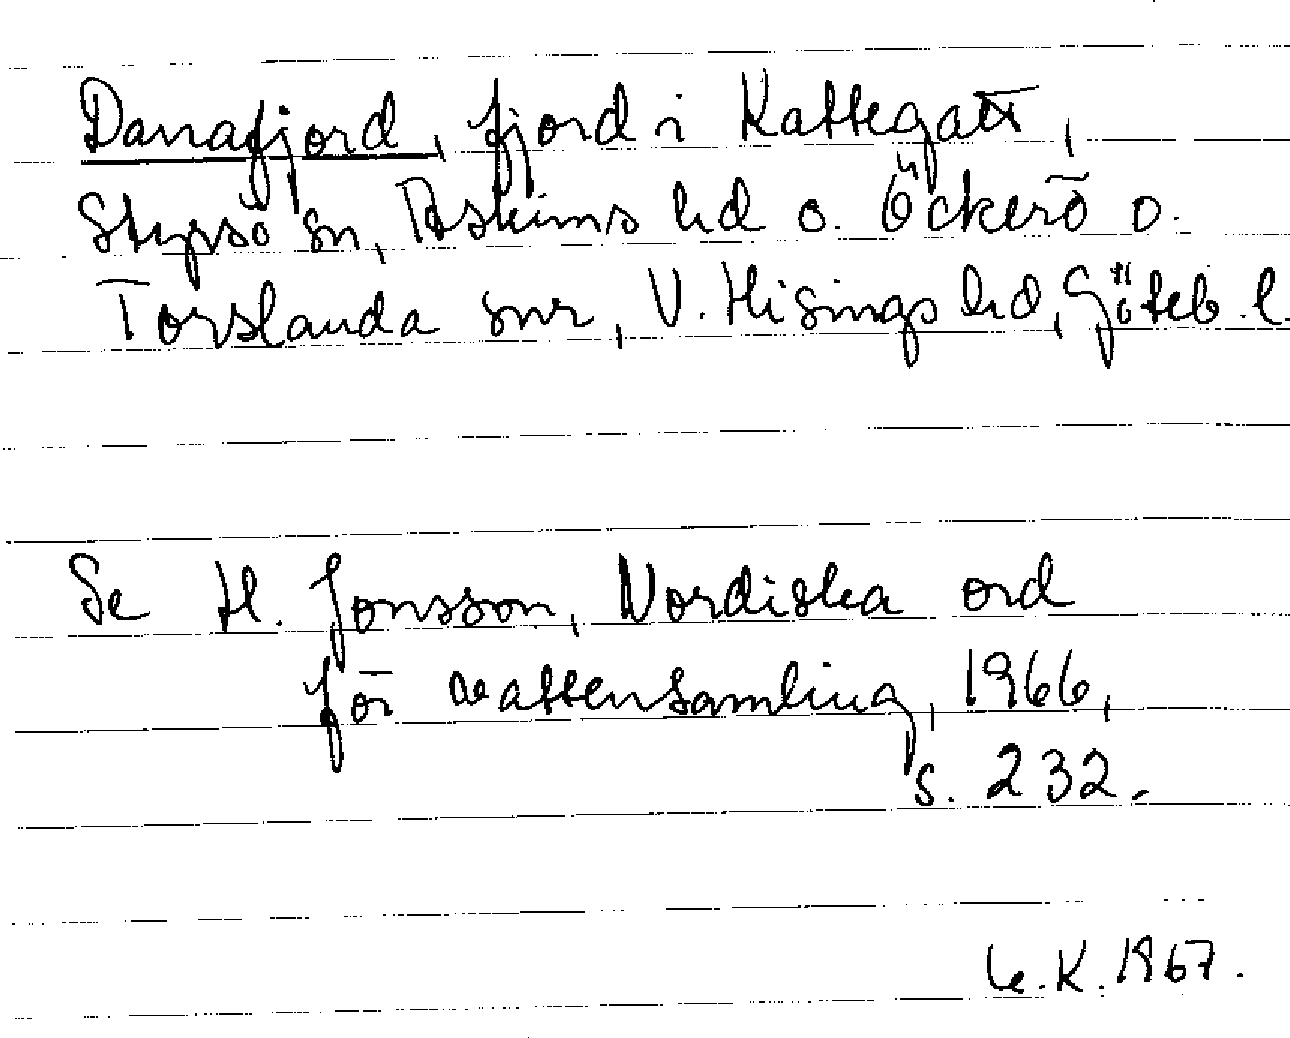 Danafjord, fjord i Kattegatt,
Styrsö sn, Askims hd o. Öckerö o.
Torslanda snr, V. Hisings hd, Göteb. l.
Se H. Jonsson, Nordiska ord
för vattensamling, 1966,
s. 232.
K. 1967.